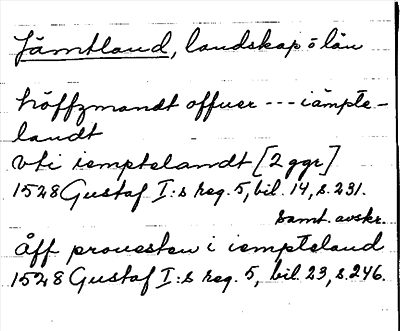 Jämtland, landskap o län
höffzmandt offuer --- iämpte-
landt
vti iemptelandt [2 ggr]
1528 Gustaf I:s reg. 5, bil. 14, s. 231.
samt. avskr.
åff prouesten i iempteland
1528 Gustaf I:s reg. 5, bil. 23, s. 246.